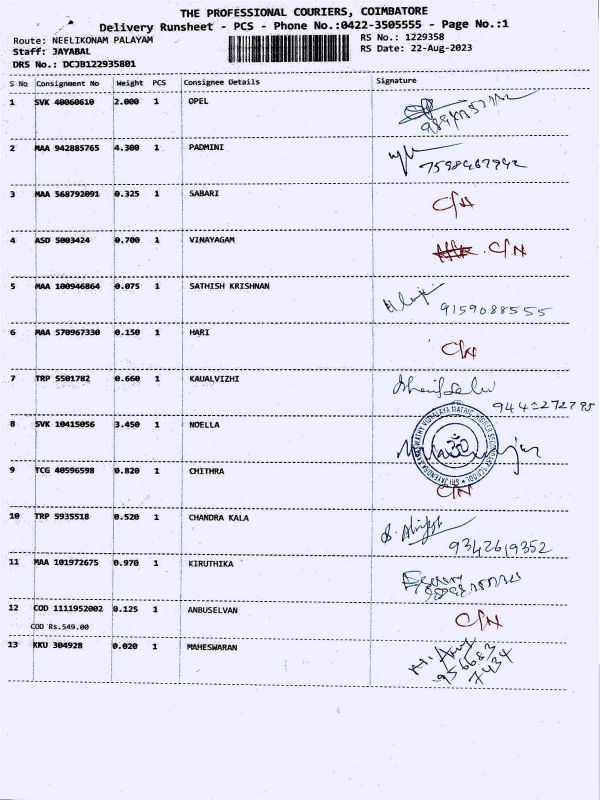 THE PROFESSIONAL COURIERS, COIMBATORE
Delivery Runsheet - PCS - Phone No.:0422-3505555 - Page No.:1
Route: NEELIKONAM PALAYAM RS No.: 1229358
Staff: JAYABAL RS Date: 22-Aug-2023
DRS No.: DCJB122935801
S No Consignment No Weight PCS Consignee Details Signature
1 SVK 40060610 2.000 1 OPEL
2 MAA 942885765 4.300 1 PADMINI
7598467942
3 MAA 568792091 0.325 1 SABARI C/N
4 ASD 5003424 0.700 1 VINAYAGAM C/N
5 MAA 100946864 0.075 1 SATHISH KRISHNAN
9159088555
6 MAA 570967330 0.150 1 HARI C/N
7 TRP 5501782 0.660 1 KAUALVIZHI
8 SVK 10415056 3.450 1 NOELLA
9 TCG 40596598 0.820 1 CHITHRA C/N
10 TRP 5935518 0.520 1 CHANDRA KALA
9342619352
11 MAA 101972675 0.970 1 KIRUTHIKA
12 COD 1111952002 0.125 1 ANBUSELVAN C/N
COD Rs.549.00
13 KKU 304928 0.020 1 MAHESWARAN
956683
7434